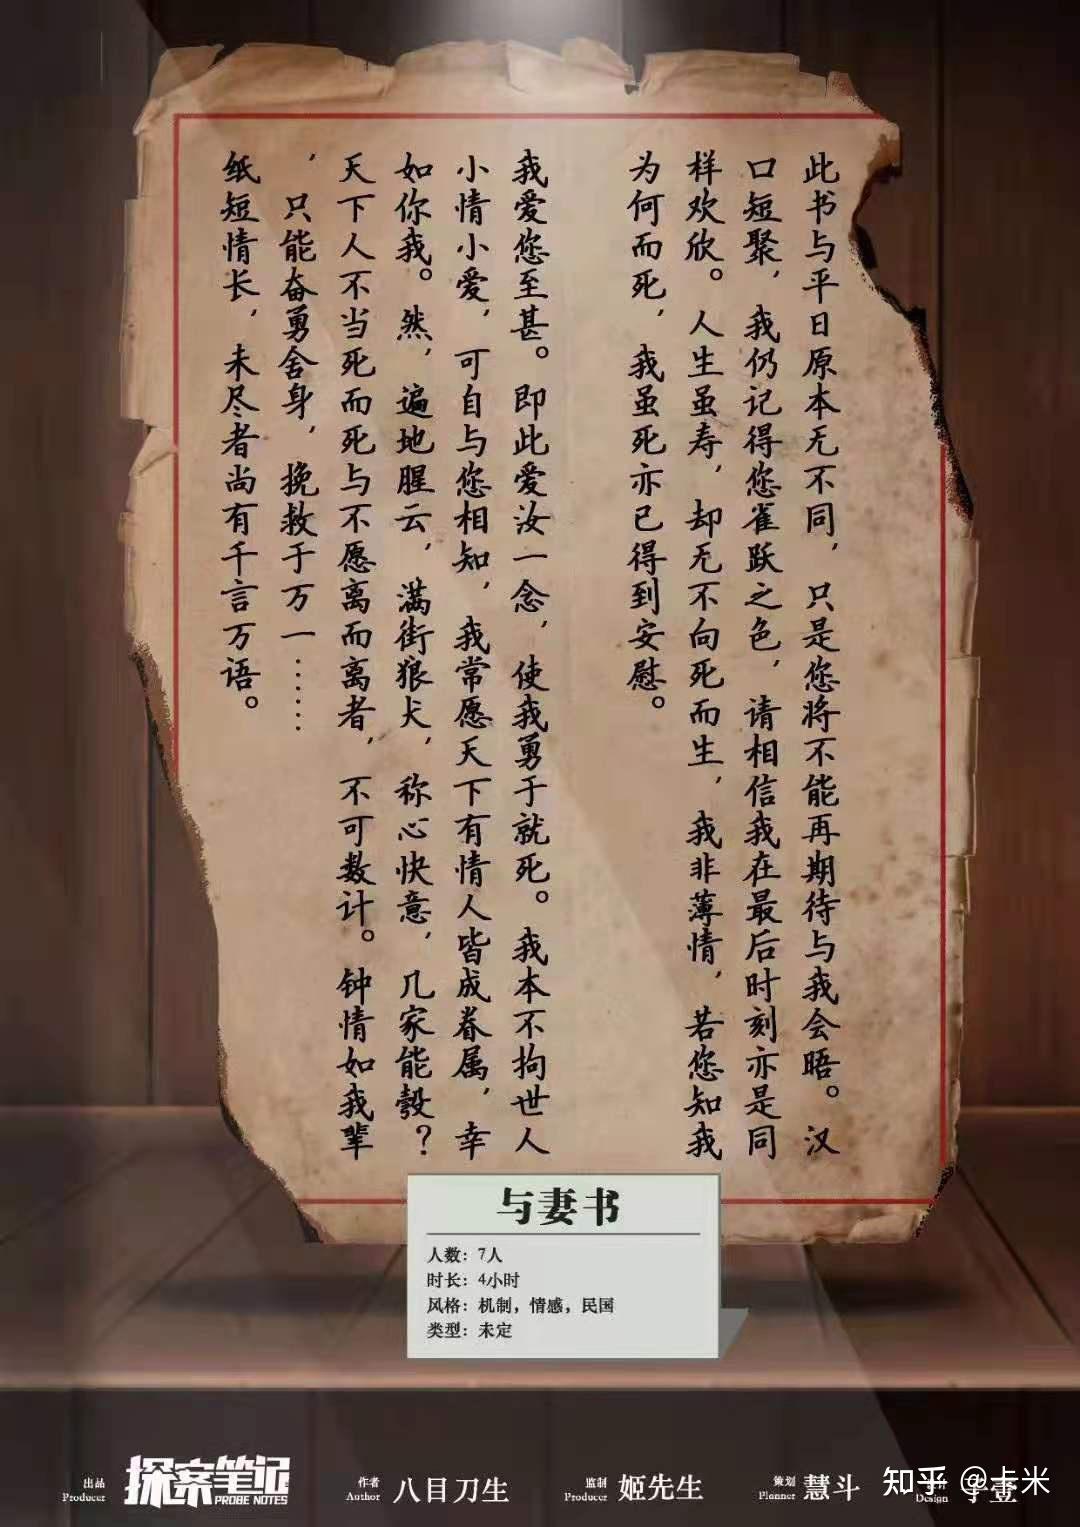 此书与平日原本无不同，只是您将不能再期待与我会晤。汉
口短聚，我仍记得您雀跃之色，请相信我在最后时刻亦是同
样欢欣。人生虽寿，却无不向死而生，我非薄情，若您知我
为何而死，我虽死亦已得到安慰。
我爱您至甚。即此爱汝一念，使我勇于就死。我本不拘世人
小情小爱，可自与您相知，我常愿天下有情人皆成眷属，幸
如你我。然，遍地腥云，满街狼犬，称心快意，几家能彀？
天下人不当死而死与不愿离而离者，不可数计。钟情如我辈
，只能奋勇舍身，挽救于万一……
纸短情长，未尽者尚有千言万语。
与妻书
人数：7人
时长：4小时
风格：机制，情感，民国
类型：未定
出品
Producer
探案笔记
PROBE NOTES
作者
Author
八目刀生
监制
Producer
姬先生
策划
Planner
慧斗
Design
知乎 @卡米